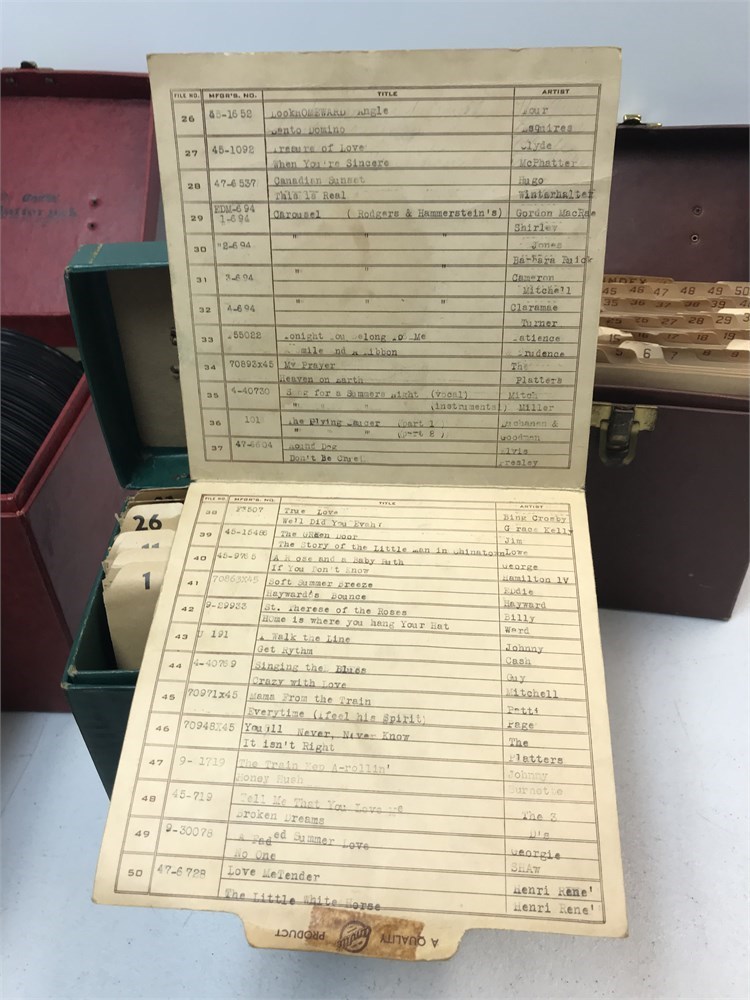 FILE NO. MFGR'S. NO. TITLE ARTIST
26 45-1652 LookHOMEWARD Angle Four
Bento Domino EsGuires
27 45-1092 Treasure of Love Clyde
When You're Sincere McPhatter
28 47-6537 Canadian Sunset Hugo
This is Real Winterhalter
29 EDM-694 Carousel ( Rodgers & Hammerstein's) Gordon MacRae
1-694 Shirley
30 "2-694 " " " Jones
Barbara Ruick
31 3-694 " " " Cameron
Mitchell
32 4-694 " " " Claramae
Turner
33 55022 Tonight You Belong To Me Patience
A Smile and A Ribbon Prudence
34 70893x45 My Prayer The
Heaven on Earth Platters
35 4-40730 Song for a Summers Night (vocal) Mitch
" " (instrumental) Miller
36 101 The Flying Saucer (Part 1 ) Buchanan &
" " (Part 2 ) Goodman
37 47-6604 Hound Dog Elvis
Don't Be Cruel Presley
FILE NO. MFGR'S. NO. TITLE ARTIST
38 F3507 True Love Bing Crosby
Well Did You Evah! Grace Kelly
39 45-15486 The GReen Door Jim
The Story of the Little Man in Chinatown Lowe
40 45-9765 A R ose and a Baby Ruth George
If You Don't Know Hamilton IV
41 70863X45 Soft Summer Breeze Eddie
Hayward's Bounce Hayward
42 9-29933 St. Therese of the Roses Billy
HOme is where you hang Your Hat Ward
43 191 I Walk the Line Johnny
Get Rythm Cash
44 4-40769 Singing the Blues Guy
Crazy with Love Mitchell
45 70971x45 Mama From the Train Patti
Everytime (Ifeel his Spirit) Page
46 70948X45 You'll Never, Never Know The
It isn't Right Platters
47 9- 1719 The Train Kep A-rollin' Johnny
Honey Hush Burnette
48 45-719 Tell Me That You Love Me The 3
Broken Dreams D's
49 9-30078 A Faded Summer Love Georgie
No One SHAw
50 47-6728 Love MeTender Henri Rene'
The Little White Horse Henri Rene'
A QUALITY PRODUCT
26
11
1
INDEX
45 46 47 48 49 50
35 36 37 38 39 4
5 6 7 8 9